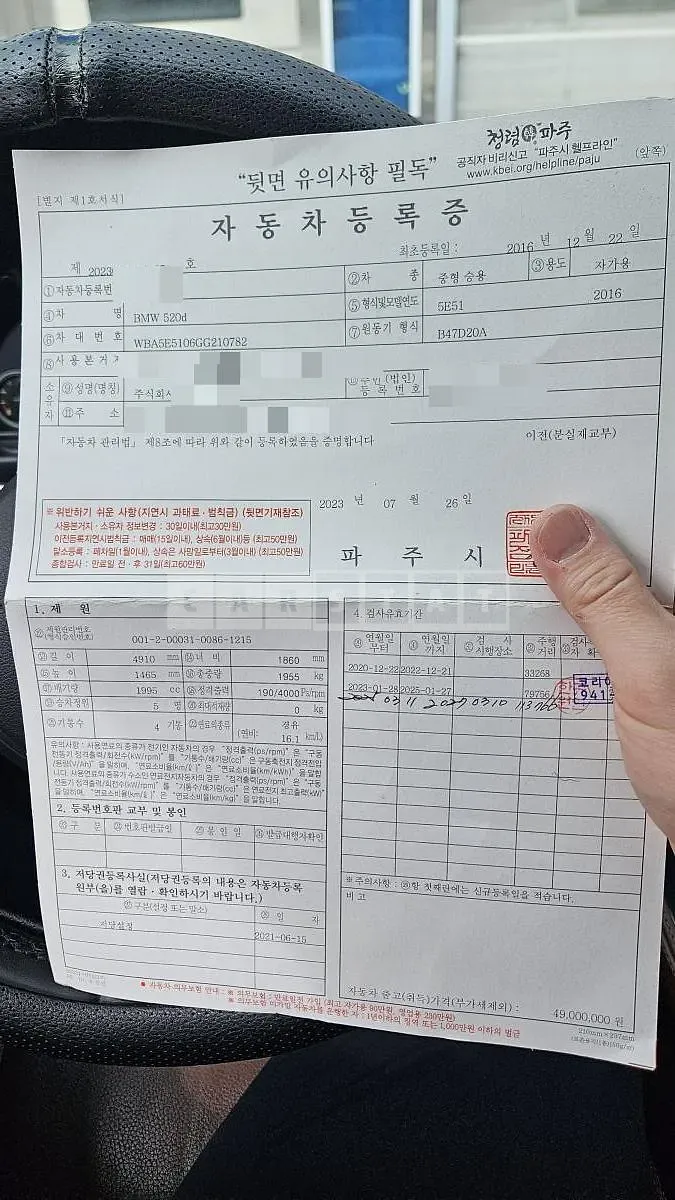 청렴 파주
"뒷면 유의사항 필독"
공직자 비리신고 "파주시 헬프라인"
(앞쪽)
www.kbei.org/helpline/paju
[별지 제1호서식]
자동차등록증
최초등록일 : 2016 년 12 월 22 일
제 2023 호
①자동차등록번 ②차 종 중형 승용 ③용도 자가용
④차 명 BMW 520d ⑤형식및모델연도 5E51 2016
⑥차대번호 WBA5E5106GG210782 ⑦원동기 형식 B47D20A
⑧사용본거지
소유자 ⑨성명(명칭) 주식회사 (법인)등록번호
⑪주 소
「자동차 관리법」 제8조에 따라 위와 같이 등록하였음을 증명합니다
이전(분실재교부)
2023 년 07 월 26 일
※ 위반하기 쉬운 사항(지연시 과태료·범칙금) (뒷면기재참조)
사용본거지 · 소유자 정보변경 : 30일이내(최고30만원)
이전등록지연시범칙금 : 매매(15일이내), 상속(6월이내)등 (최고50만원)
말소등록 : 폐차일(1월이내), 상속은 사망일로부터(3월이내) (최고50만원)
종합검사 : 만료일 전 · 후 31일(최고60만원)
파 주 시
CARSTAT
1. 제 원
제원관리번호 (형식승인번호) 001-2-00031-0086-1215
길이 4910 mm 너비 1860 mm
높이 1465 mm 총중량 1955 kg
배기량 1995 cc 정격출력 190/4000 Ps/rpm
승차정원 5 명 최대적재량 0 kg
기통수 4 기통 연료의종류 경유 (연비: 16.1 km/L)
유의사항 : 사용연료의 종류가 전기인 자동차의 경우 "정격출력(ps/rpm)"은 "구동
전동기 정격출력/회전수(kW/rpm)"를 "기통수/배기량(cc)"은 구동축전지 정격전압
(용량(V/Ah)"을 말하며, "연료소비율(km/ℓ)"은 "연료소비율(km/kWh)"을 말합
니다. 사용연료의 종류가 수소인 연료전지자동차의 경우 "정격출력(ps/rpm)"은 "구동
전동기 정격출력/회전수(kW/rpm)"를 "기통수/배기량(cc)"은 연료전지 최고출력(kW)
을 말하며, "연료소비율(km/ℓ)"은 "연료소비율(km/kg)"을 말합니다.
2. 등록번호판 교부 및 봉인
구 분 번호판발급일 봉인일 발급대행자확인
3. 저당권등록사실(저당권등록의 내용은 자동차등록
원부(을)를 열람 · 확인하시기 바랍니다.)
구분(설정 또는 말소) 일 자
저당설정 2021-06-15
4. 검사유효기간
연월일부터 연월일까지 검사시행장소 주행거리 검사
2020-12-22 2022-12-21 33268
2023-01-28 2025-01-27 79756
코리아
941
03 11 03 10
※주의사항 : 항 첫째란에는 신규등록일을 적습니다.
비 고
자동차 출고(취득)가격(부가세제외) : 49,000,000 원
210mm×297mm
● 자동차 의무보험 안내 : ※ 의무보험 : 만료일전 가입 (최고 자가용 90만원, 영업용 230만원)
※ 의무보험 미가입 자동차를 운행한 자 : 1년이하의 징역 또는 1,000만원 이하의 벌금